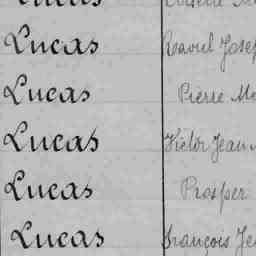 Lucas
Lucas Raoul Josep
Lucas Pierre Ma
Lucas Victor Jean
Lucas Prosper
Lucas François Je